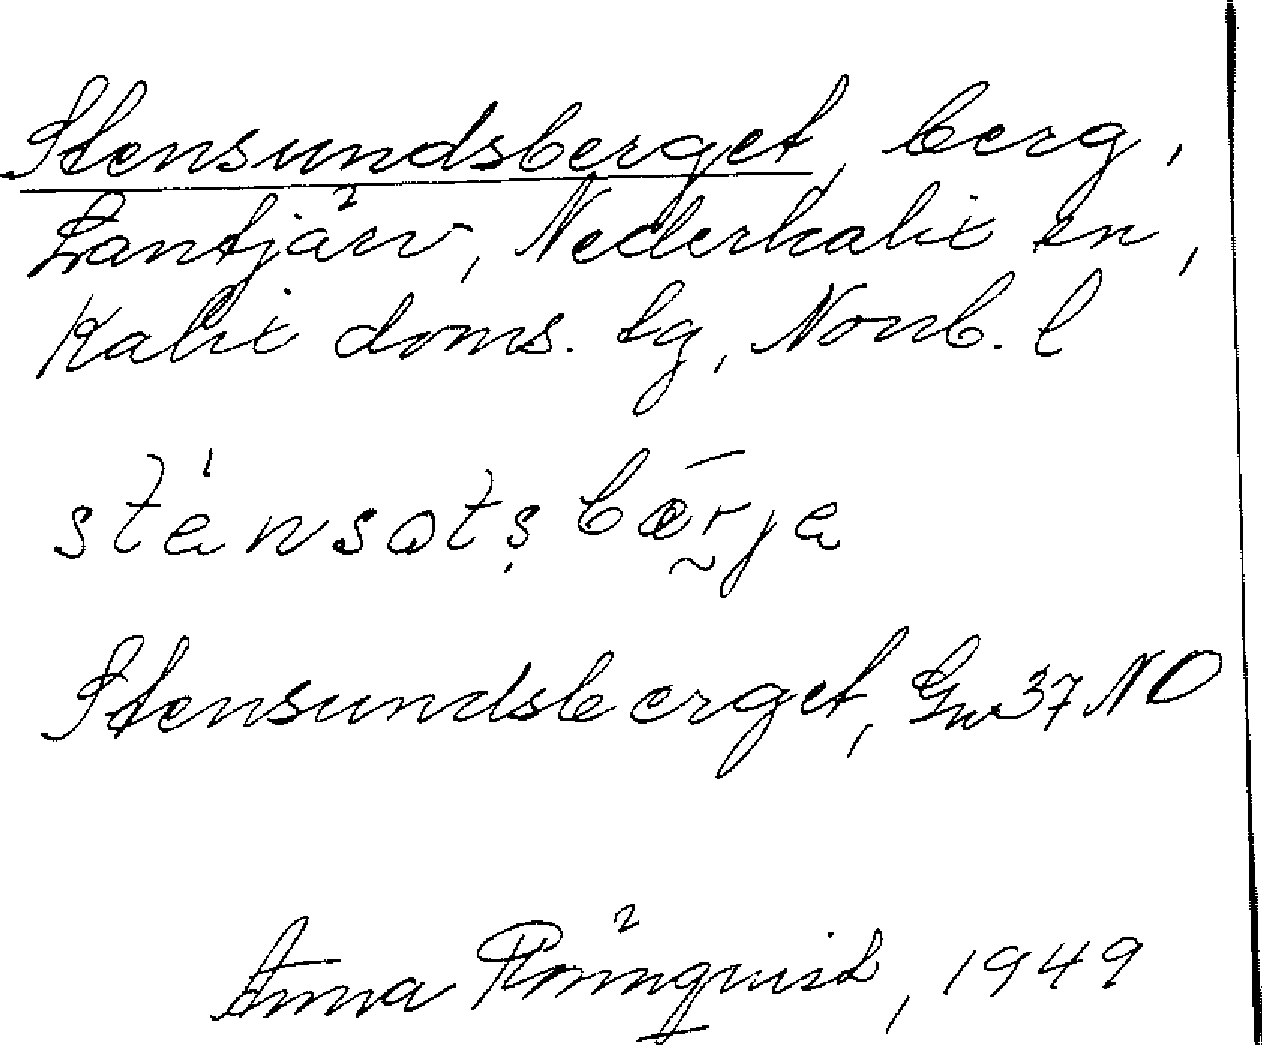 Stensundsberget, berg,
Lantjärv, Nederkalix sn,
Kalix doms. lg, Norrb. l
sténsotsbärja
Stensundsberget, Gw 37 NO
Anna Rönnquist, 1949